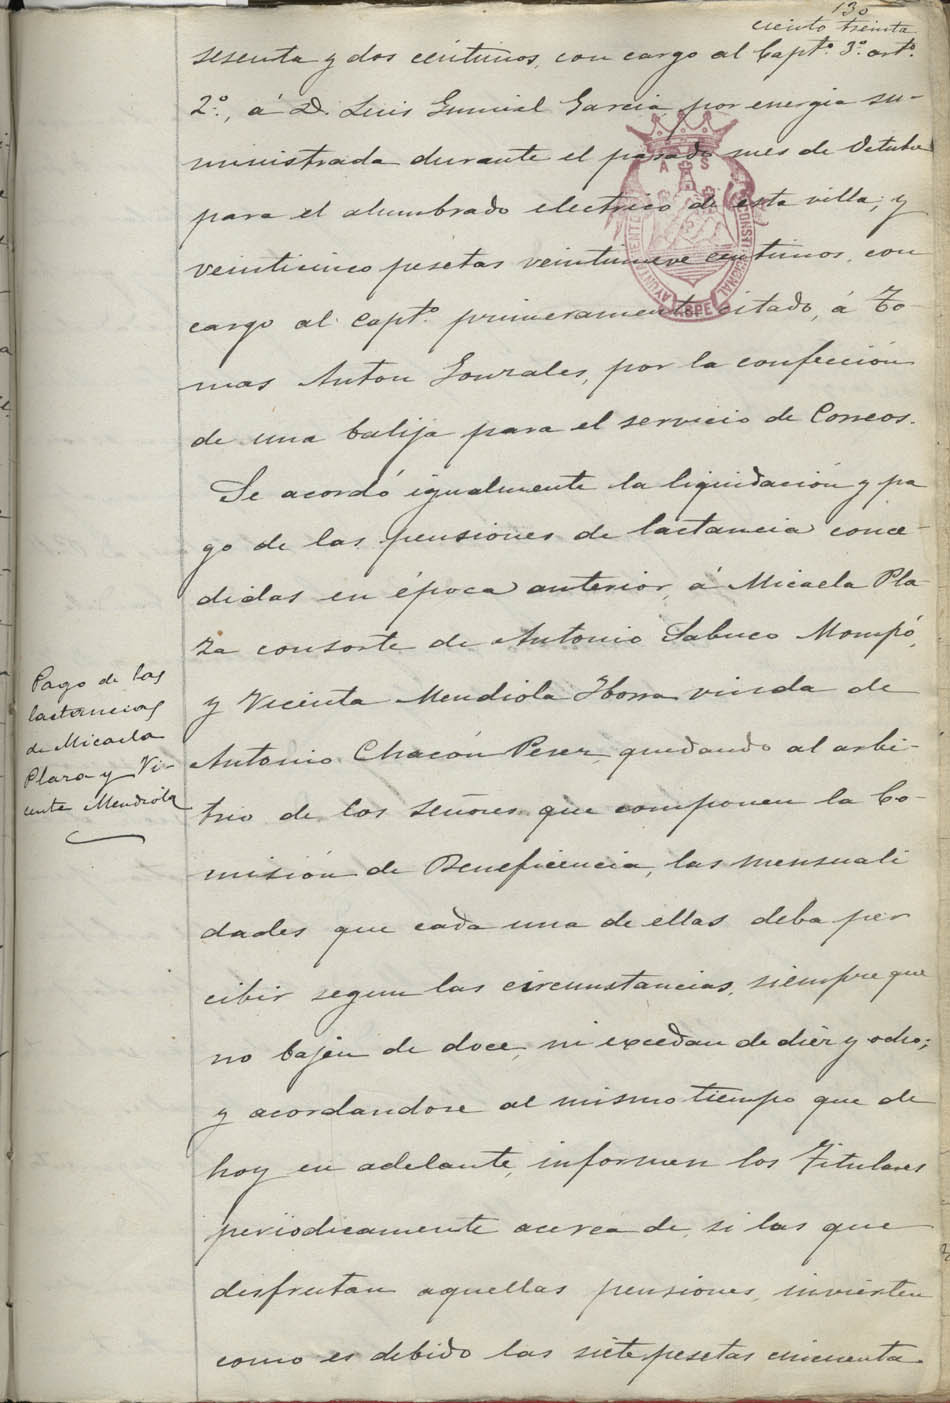 130
ciento treinta
sesenta y dos céntimos, con cargo al Captº. 3º. artº.
2º., á D. Luis Gumiel Garcia, por energia su-
ministrada durante el pasado mes de Octubre
para el alumbrado electrico de esta villa; y
veinticinco pesetas veintinueve centimos, con
cargo al Captº. primeramente citado, á To-
mas Anton Gonzales, por la confección
de una balija para el servicio de Correos.
Se acordó igualmente la liquidación y pa
go de las pensiones de lactancia conce-
didas en época anterior, á Micaela Pla-
za consorte de Antonio Sabuco Mompó,
y Vicenta Mendiola Iborra viuda de
Antonio Chacón Perez, quedando al arbi-
trio de los Señores que componen la Co-
misión de Beneficencia, las mensuali
dades que cada una de ellas deba per
cibir segun las circunstancias, siempre que
no bajen de doce, ni excedan de diez y ocho;
y acordandose al mismo tiempo que de
hoy en adelante, informen los Titulares
periodicamente acerca de, si las que
disfrutan aquellas pensiones, invierten
como es debido las siete pesetas cincuenta
Pago de las
lactancias
de Micaela
Plaza y Vi-
centa Mendiola
A S
AYUNTAMIENTO CONSTITUCIONAL
ASPE